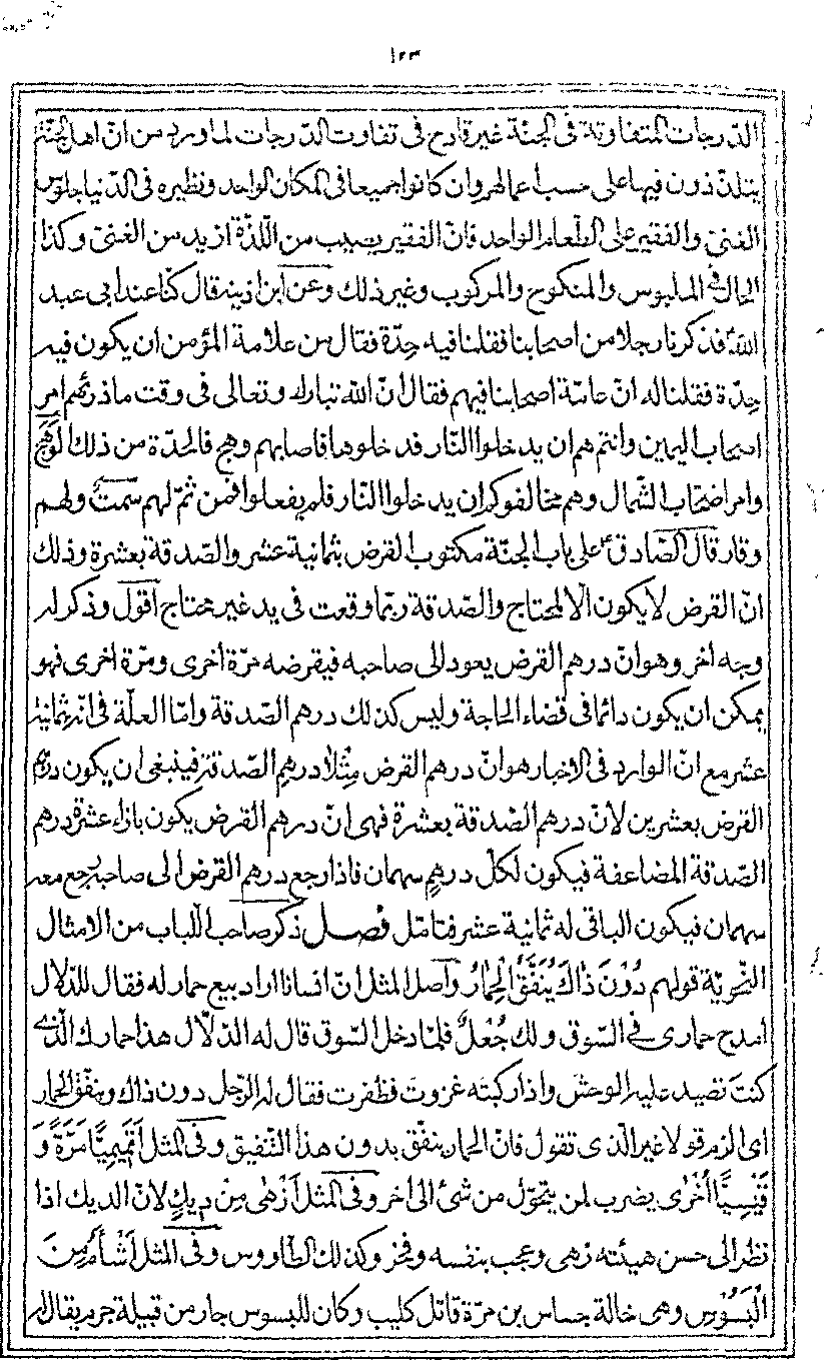 ١٢٣
الدّرجات المتفاوتة فى الجنّة غير قادح فى تفاوت الدّرجات لما ورد من انّ اهل الجنّة
يتلذّذون فيها على حسب اعمالهم وان كانوا جميعا فى المكان الواحد ونظيره فى الدّنيا جلوس
الغنىّ والفقير على الطّعام الواحد فانّ الفقير يصيب من اللّذّة ازيد من الغنىّ وكذا
الحال فى الملبوس والمنكوح والمركوب وغير ذلك وعن ابن اذينه قال كنّا عند ابى عبد
اللهؑ فذكرنا رجلا من اصحابنا فقلنا فيه حِدّة فقال من علامة المؤمن ان يكون فيه
حِدّة فقلنا له انّ عامّة اصحابنا فيهم فقال انّ الله تبارك وتعالى فى وقت ما ذرئهم امر
اصحاب اليمين وانتم هم ان يدخلوا النّار فدخلوها فاصابهم وهج فالحدّة من ذلك الوهج
وامر اصحاب الشّمال وهم مخالفوكم ان يدخلوا النّار فلم يفعلوا فمن ثمّ لهم سمت ولهم
وقار قال الصّادقؑ على باب الجنّة مكتوب القرض بثمانية عشر والصّدقة بعشرة وذلك
انّ القرض لا يكون الا لمحتاج والصّدقة ربّما وقعت فى يد غير محتاج اقول وذكر له
وجه اخر وهو انّ درهم القرض يعود الى صاحبه فيقرضه مرّة اخرى ومرّة اخرى فهو
يمكن ان يكون دائما فى قضاء الحاجة وليس كذلك درهم الصّدقة وامّا العلّة فى انّه ثمانية
عشر مع انّ الوارد فى الاخبار هو انّ درهم القرض مِثْلا درهمِ الصّدقة فينبغى ان يكون درهم
القرض بعشرين لانّ درهم الصّدقة بعشرة فهى انّ درهم القرض يكون بازاء عشرة درهم
الصّدقة المضاعفة فيكون لكلّ درهمٍ سهمان فاذا رجع درهم القرض الى صاحبه رجع معه
سهمان فيكون الباقى له ثمانية عشر فتامّل فصل ذكر صاحب اللّباب من الامثال
النّحويّة قولهم دُوْنَ ذَاكَ يُنَفَّقُ الْحِمَارُ واصل المثل انّ انسانا اراد بيع حمار له فقال للدّلال
امدح حمارى فى السّوق ولك جُعْلٌ فلمّا دخل السّوق قال له الدّلّال هذا حمارك الّذى
كنتَ تصيد عليه الوحش واذا ركبته غزوتَ فظفرت فقال له الرّجل دون ذاك ينفّق الحمار
اى الزم قولا غير الّذى تقول فانّ الحمار ينفّق بدون هذا التّنفيق وفى المثل أَتَمِيمِيًّا مَرَّةً وَ
قَيْسِيًّا أُخْرٰى يضرب لمن يتحوّل من شئ الى اخر وفى المثل أَزْهٰى مِنْ دِيكٍ لانّ الديك اذا
نظر الى حسن هيئته زهى وعجب بنفسه وفخر وكذلك الطّاووس وفى المثل أَشْأَمُ مِنَ
الْبَسُوْسِ وهى خالة جساس بن مرّة قاتل كليب وكان للبسوس جار من قبيلة جرم يقال له